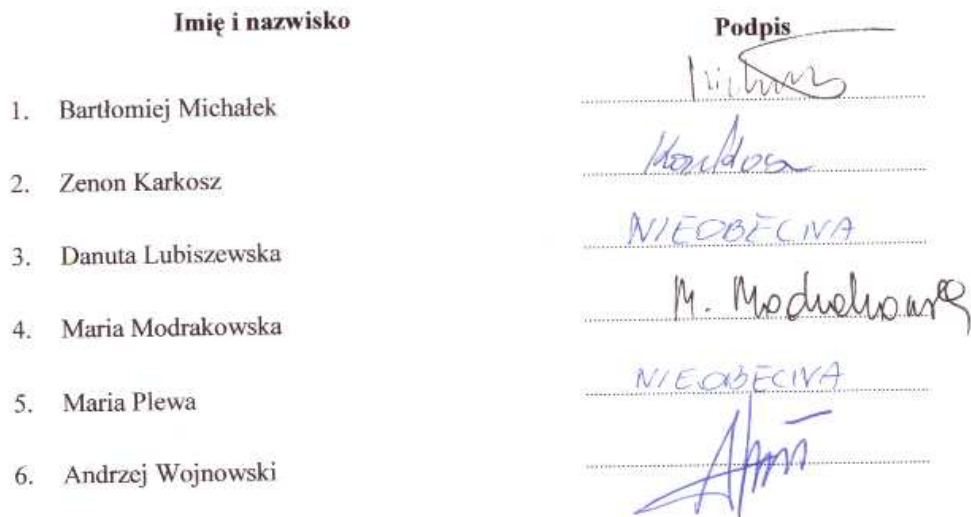 Imię i nazwisko Podpis
1. Bartłomiej Michałek
2. Zenon Karkosz
3. Danuta Lubiszewska NIEOBECNA
4. Maria Modrakowska M. Modrakowska
5. Maria Plewa NIEOBECNA
6. Andrzej Wojnowski